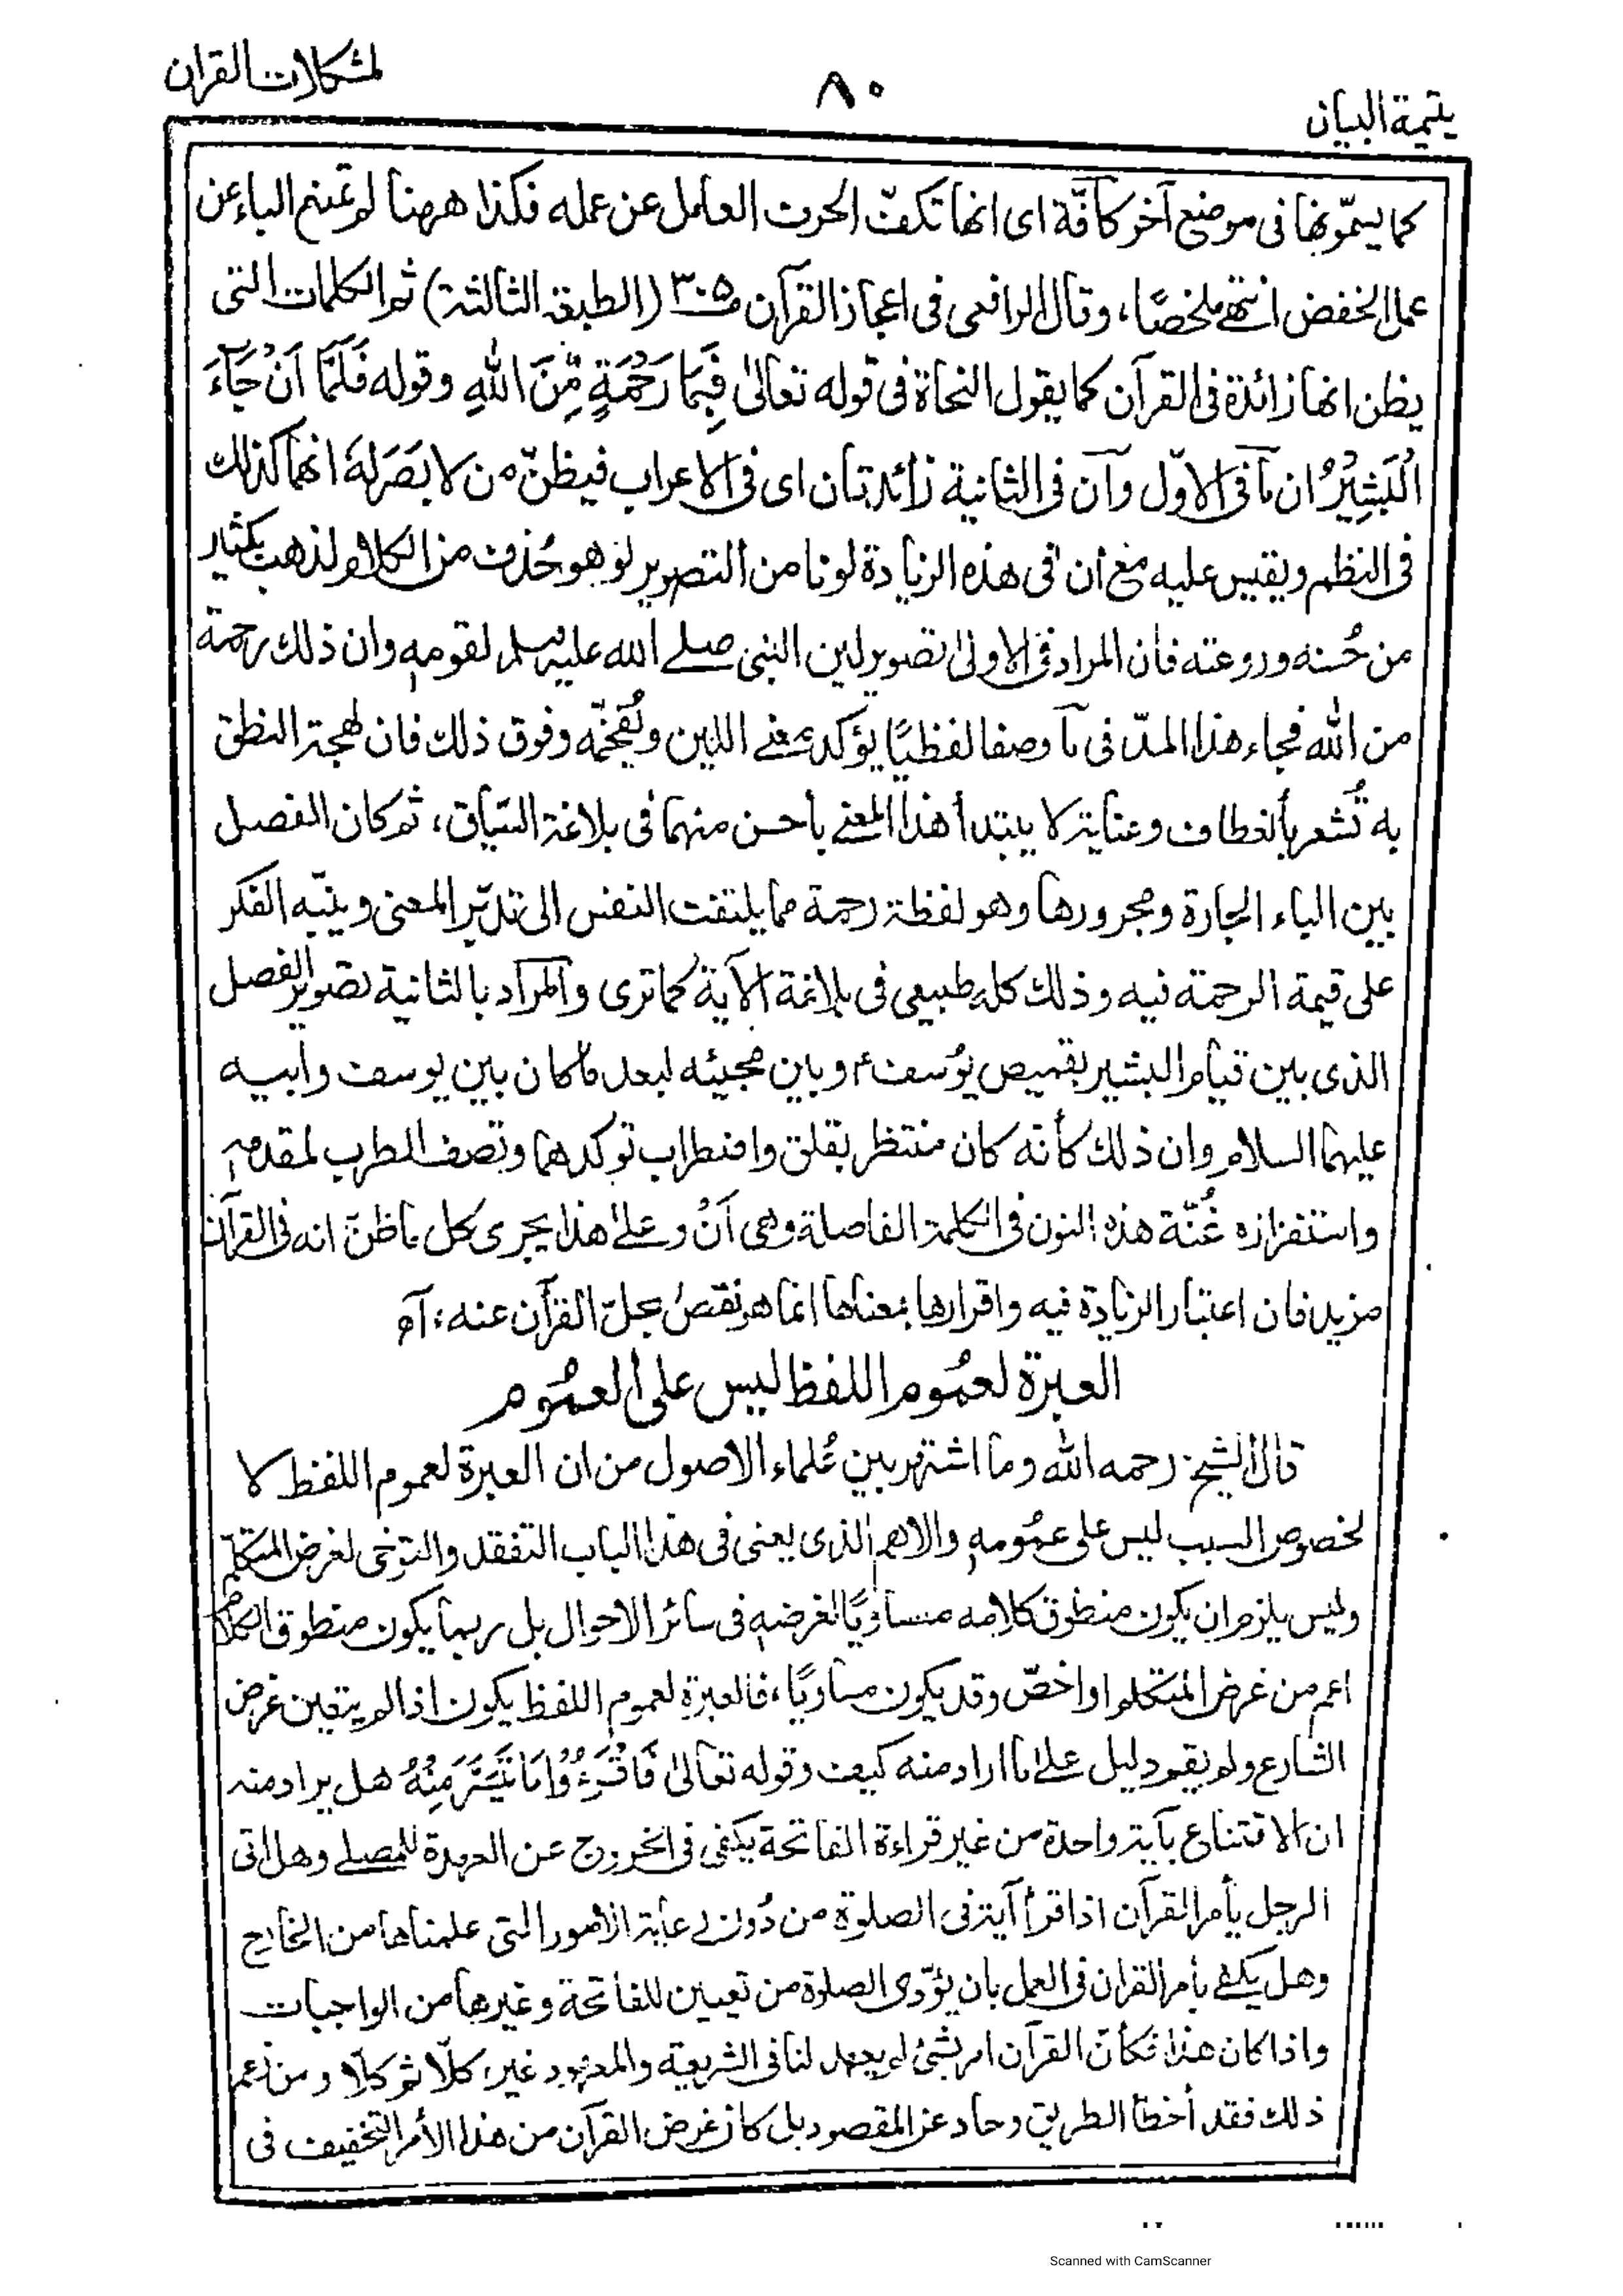 يتيمة البيان
٨٠
لمشكلات القران
كما يسمّونها فى موضع آخر كافّة اى انها تكفّ الحرف العامل عن عمله فكذا ههنا لم تمنع الباء عن
عمل الخفض انتهى ملخصًا، وقال الرافعى فى اعجاز القرآن ص ٣٠٥ (الطبقة الثالثة) ثم الكلمات التى
يظن انها زائدة فى القرآن كما يقول النحاة فى قوله تعالىٰ فَبِمَا رَحْمَةٍ مِّنَ اللهِ وقوله فَلَمَّا اَنْ جَآءَ
الْبَشِيْرُ ان مآ فى الاوّل وآن فى الثانية زائدتان اى فى الاعراب فيظنّ من لا بَصَرَ لهٗ انهما كذلك
فى النظم ويقيس عليه مع أن فى هذه الزيادة لونا من التصوير لو هو حُذف من الكلام لذهب بكثير
من حُسنه وروعته فان المراد فى الاولىٰ تصوير لين النبى صلى الله عليه وسلم لقومه وان ذلك رحمة
من الله فجاء هذا المدّ فى مآ وصفا لفظيًا يؤكد معنى اللين ويُفخّمه وفوق ذلك فان لهجة النطق
به تُشعر بانعطاف وعناية لا يبتدأ هذا المعنى بأحسن منهما فى بلاغة السّياق، ثم كان الفصل
بين الباء الجارة ومجرورها وهو لفظة رحمة مما يلفت النفس الى تدبّر المعنى وينبّه الفكر
على قيمة الرحمة فيه وذلك كله طبيعى فى بلاغة الآية كما ترى والمراد بالثانية تصوير الفصل
الذى بين قيام البشير بقميص يُوسف ؑ وبين مجيئه لبعد ما كان بين يوسف وابيه
عليهما السلام وان ذلك كأنه كان منتظر بقلق واضطراب توكدهما وتصف الطرب لمقدمه
واستفزازه غُنّة هذه النون فى الكلمة الفاصلة وهى اَنْ وعلىٰ هذا يجرى كل ما ظنّ انه فى القرآن
مزيد فان اعتبار الزيادة فيه واقرارها بمعناها انما هو نقصٌ يجلّ القرآن عنه؛ آه
العبرة لعمُوم اللفظ ليس على العمُوم
قال الشيخ رحمه الله وما اشتهر بين عُلماء الاصول من ان العبرة لعموم اللفظ لا
لخصوص السبب ليس على عمُومه والاهم الذى يعنى فى هذا الباب التفقد والتوخى لغرض المتكلم
وليس يلزم ان يكون منطوق كلامه مساويًا لغرضه فى سائر الاحوال بل ربما يكون منطوق الكلام
اعم من غرض المتكلم او اخصّ وقد يكون مساويًا، فالعبرة لعموم اللفظ يكون اذا لم يتعين غرض
الشارع ولم يقم دليل علىٰ ما اراد منه كيف وقوله تعالىٰ فَاقْرَءُوْا مَا تَيَسَّرَ مِنْهُ هل يراد منه
ان الاقتناع بآية واحدة من غير قراءة الفاتحة يكفى فى الخروج عن العهدة للمصلى وهل اتى
الرجل بأمر القرآن اذا قرأ آية فى الصلوة من دُون رعاية الامور التى علمناها من الخارج
وهل يكفى بأمر القران فى العمل بان يؤدى الصلوة من تعيين للفاتحة وغيرها من الواجبات
واذا كان هذا فكأنّ القرآن امر بشئ لم يعهد لنا فى الشريعة والمعهود غيره كلّا ثم كلّا ومن زعم
ذلك فقد أخطأ الطريق وحاد عن المقصود بل كان غرض القرآن من هذا الأمر التخفيف فى
Scanned with CamScanner